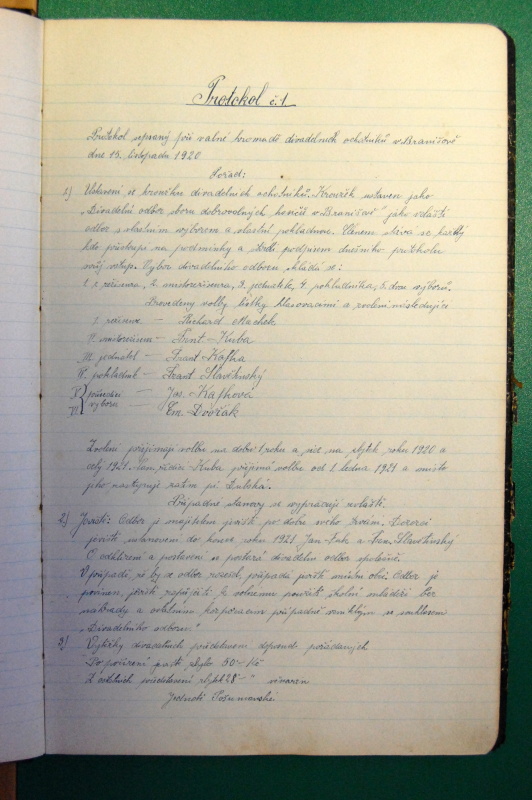 Protokol č.1
Protokol sepsaný při valné hromadě divadelních ochotníků v Branišově
dne 15. listopadu 1920
Pořad:
1.) Ustavení se kroužku divadelních ochotníků. Kroužek ustaven jako
„Divadelní odbor sboru dobrovolných hasičů v Branišově" jako zvláštní
odbor s vlastním výborem a vlastní pokladnou. Členem stává se každý
kdo přistoupí na podmínky a stvrdí podpisem dnešního protokolu
svůj vstup. Výbor divadelního odboru skládá se:
1. z režisera, 2. místorežisera, 3. jednatele, 4. pokladníka, 5. dvou výborů.
Provedeny volby lístky hlasovacími a zvoleni následující
I. režiser — Richard Machek
II. místorežiser — Frant. Kuba
III. jednatel — Frant. Kafka
IV. pokladník — Frant. Slavětínský
V. přísedící — Jos. Kafková
VI. výboru — Em. Dvořák
Zvolení přijímají volbu na dobu 1 roku a sice na zbytek roku 1920 a
celý 1921. Kuba přijímá volbu od 1. ledna 1921 a místo
jeho zastupuje zatím
Případné stanovy se vypracují zvlášť.
2.) Jeviště: Odbor je majitelem jeviště po dobu svého trvání. Dozorci
jeviště ustanoveni do konce roku 1921 Jan a Fran. Slavětínský
O odklizení a postavení se postará divadelní odbor společně.
V případě, že by se odbor rozešel, připadá jeviště místní obci. Odbor je
povinen, jeviště zapůjčiti k volnému použití školní mládeži bez
náhrady a ostatním korporacím případně venkovským se souhlasem
„Divadelního odboru."
3.) Výtěžky divadelních představení doposud pořádaných
Po pořízení jeviště zbylo 50 - Kč
Z ostatních představení zbytek 28 - "